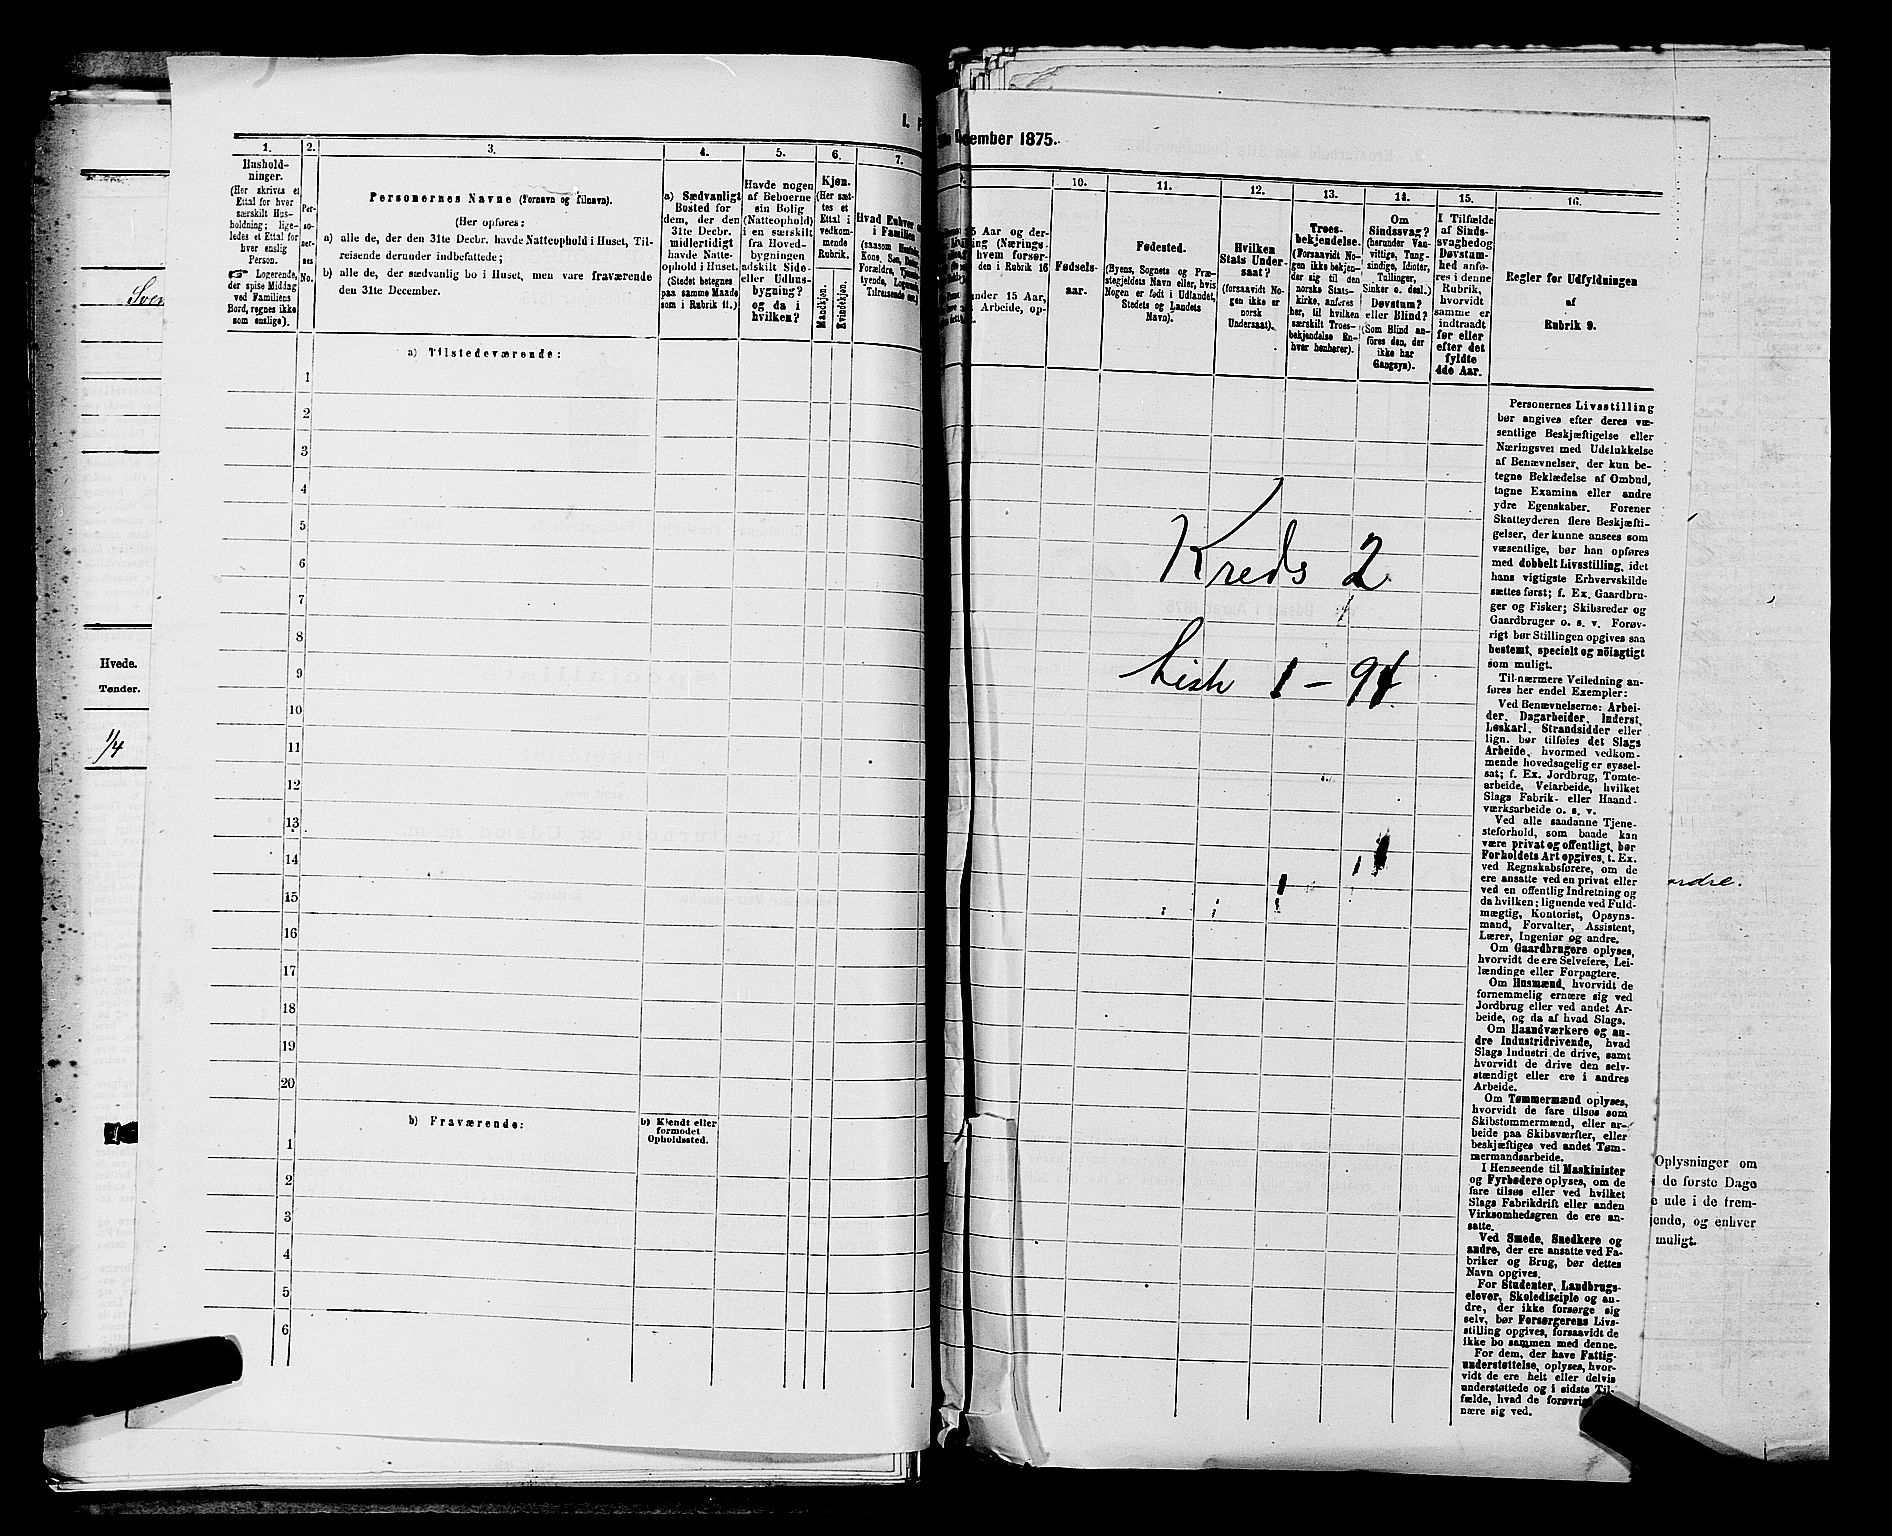 I. F
December 1875.
1.
Hushold-
ninger.
(Her skrives et
Ettal for hver
særskilt Hus-
holdning; lige-
ledes et Ettal for
hver enslig
Person.
☞ Logerende,
der spise Middag
ved Familiens
Bord, regnes ikke
som enslige).
2.
Per-
so-
ner-
nes
No.
3.
Personernes Navne (Fornavn og Tilnavn).
(Her opføres:
a) alle de, der den 31te Decbr. havde Natteophold i Huset, Til-
reisende derunder indbefattede;
b) alle de, der sædvanlig bo i Huset, men vare fraværende
den 31te December.
4.
a) Sædvanligt
Bosted for
dem, der den
31te Decbr.
midlertidigt
havde Natte-
ophold i Huset.
(Stedet betegnes
paa samme Maade
som i Rubrik 11.)
5.
Havde nogen
af Beboerne
sin Bolig
(Natteophold)
i en særskilt
fra Hoved-
bygningen
adskilt Side-
eller Udhus-
bygning?
og da i
hvilken?
6.
Kjøn.
(Her sæt-
tes et
Ettal i
vedkom-
mende
Rubrik.
Mandkjøn.
Kvindekjøn.
7.
Hvad Enhver
i Familien
(saasom
Kone, Søn,
Forældre,
tyende,
Tilreisende
15 Aar og der-
(Nærings-
hvem forsør-
den i Rubrik 16
under 15 Aar,
Arbeide, op-
10.
Fødsels-
aar.
11.
Fødested.
(Byens, Sognets og Præ-
stegjeldets Navn eller, hvis
Nogen er født i Udlandet,
Stedets og Landets
Navn).
12.
Hvilken
Stats Under-
saat?
(forsaavidt No-
gen ikke er
norsk
Undersaat).
13.
Troes-
bekjendelse.
(Forsaavidt No-
gen ikke bekjen-
der sig til den
norske Stats-
kirke, anføres
her, til hvilken
særskilt Troes-
bekjendelse En-
hver henhører).
14.
Om
Sindssvag?
(herunder Van-
vittige, Tung-
sindige, Idioter,
Tullinger,
Sinker o. desl.)
Døvstum?
eller Blind?
(Som Blind an-
føres den, der
ikke har
Gangsyn).
15.
I Tilfælde
af Sinds-
svaghed og
Døvstum-
hed anfø-
res i denne
Rubrik,
hvorvidt
samme er
indtraadt
før eller
efter det
fyldte
4de Aar.
16.
Regler før Udfyldningen
af
Rubrik 9.
a) Tilstedeværende:
1
2
3
4
5
6
7
8
9
10
11
12
13
14
15
16
17
18
19
20
b) Fraværende:
b) Kjendt eller
formodet
Opholdssted.
1
2
3
4
5
6
Hvede.
Tønder.
1/4
Kreds 2
Liste 1 - 94
Personernes Livsstilling
bør angives efter deres væ-
sentlige Beskjæftigelse eller
Næringsvei med Udelukkelse
af Benævnelser, der kun be-
tegne Beklædelse af Ombud,
tagne Examina eller andre
ydre Egenskaber. Forener
Skatteyderen flere Beskjæfti-
gelser, der kunne ansees som
væsentlige, bør han opføres
med dobbelt Livsstilling, idet
hans vigtigste Erhvervskilde
sættes først; f. Ex. Gaardbru-
ger og Fisker; Skibsreder og
Gaardbruger o. s. v. Forøv-
rigt bør Stillingen opgives saa
bestemt, specielt og nöiagtigt
som muligt.
Til nærmere Veiledning an-
føres her endel Exempler:
Ved Benævnelserne: Arbei-
der, Dagarbeider, Inderst,
Løskarl, Strandsidder eller
lign. bør tilføies det Slags
Arbeide, hvormed vedkom-
mende hovedsagelig er syssel-
sat; f. Ex. Jordbrug, Tomte-
arbeide, Veiarbeide, hvilket
Slags Fabrik- eller Haand-
værksarbeide o. s. v.
Ved alle saadanne Tjene-
steforhold, som baade kan
være privat og offentligt, bør
Forholdets Art opgives, t. Ex.
ved Regnskabsførere, om de
ere ansatte ved en privat eller
ved en offentlig Indretning og
da hvilken; lignende ved Fuld-
mægtig, Kontorist, Opsyns-
mand, Forvalter, Assistent,
Lærer, Ingeniør og andre.
Om Gaardbrugere oplyses,
hvorvidt de ere Selveiere, Lei-
lændinge eller Forpagtere.
Om Husmænd, hvorvidt de
fornemmelig ernære sig ved
Jordbrug eller ved andet Ar-
beide, og da af hvad Slags.
Om Haandværkere og an-
dre Industridrivende, hvad
Slags Industri de drive, samt
hvorvidt de drive den selv-
stændigt eller ere i andres
Arbeide.
Om Tømmermænd oplyses,
hvorvidt de fare tilsøs som
Skibstømmermænd, eller ar-
beide paa Skibsværfter, eller
beskjæftiges ved andet Tøm-
mermandsarbeide.
I Henseende til Maskinister
og Fyrbødere oplyses, om de
fare tilsøs eller ved hvilket
Slags Fabrikdrift eller anden
Virksomhedsgren de ere an-
satte.
Ved Smede, Snedkere og
andre, der ere ansatte ved Fa-
briker og Brug, bør dettes
Navn opgives.
For Studenter, Landbrugs-
elever, Skoledisciple og an-
dre, der ikke forsørge sig
selv, bør Forsørgerens Livs-
stilling opgives, forsaavidt de
ikke bo sammen med denne.
For dem, der have Fattig-
understøttelse, oplyses, hvor-
vidt de ere helt eller delvis
understøttede og i sidste Til-
fælde, hvad de forøvrigt
nære sig ved.
Oplysninger om
i de første Dage
e ude i de frem-
jende, og enhver
muligt.